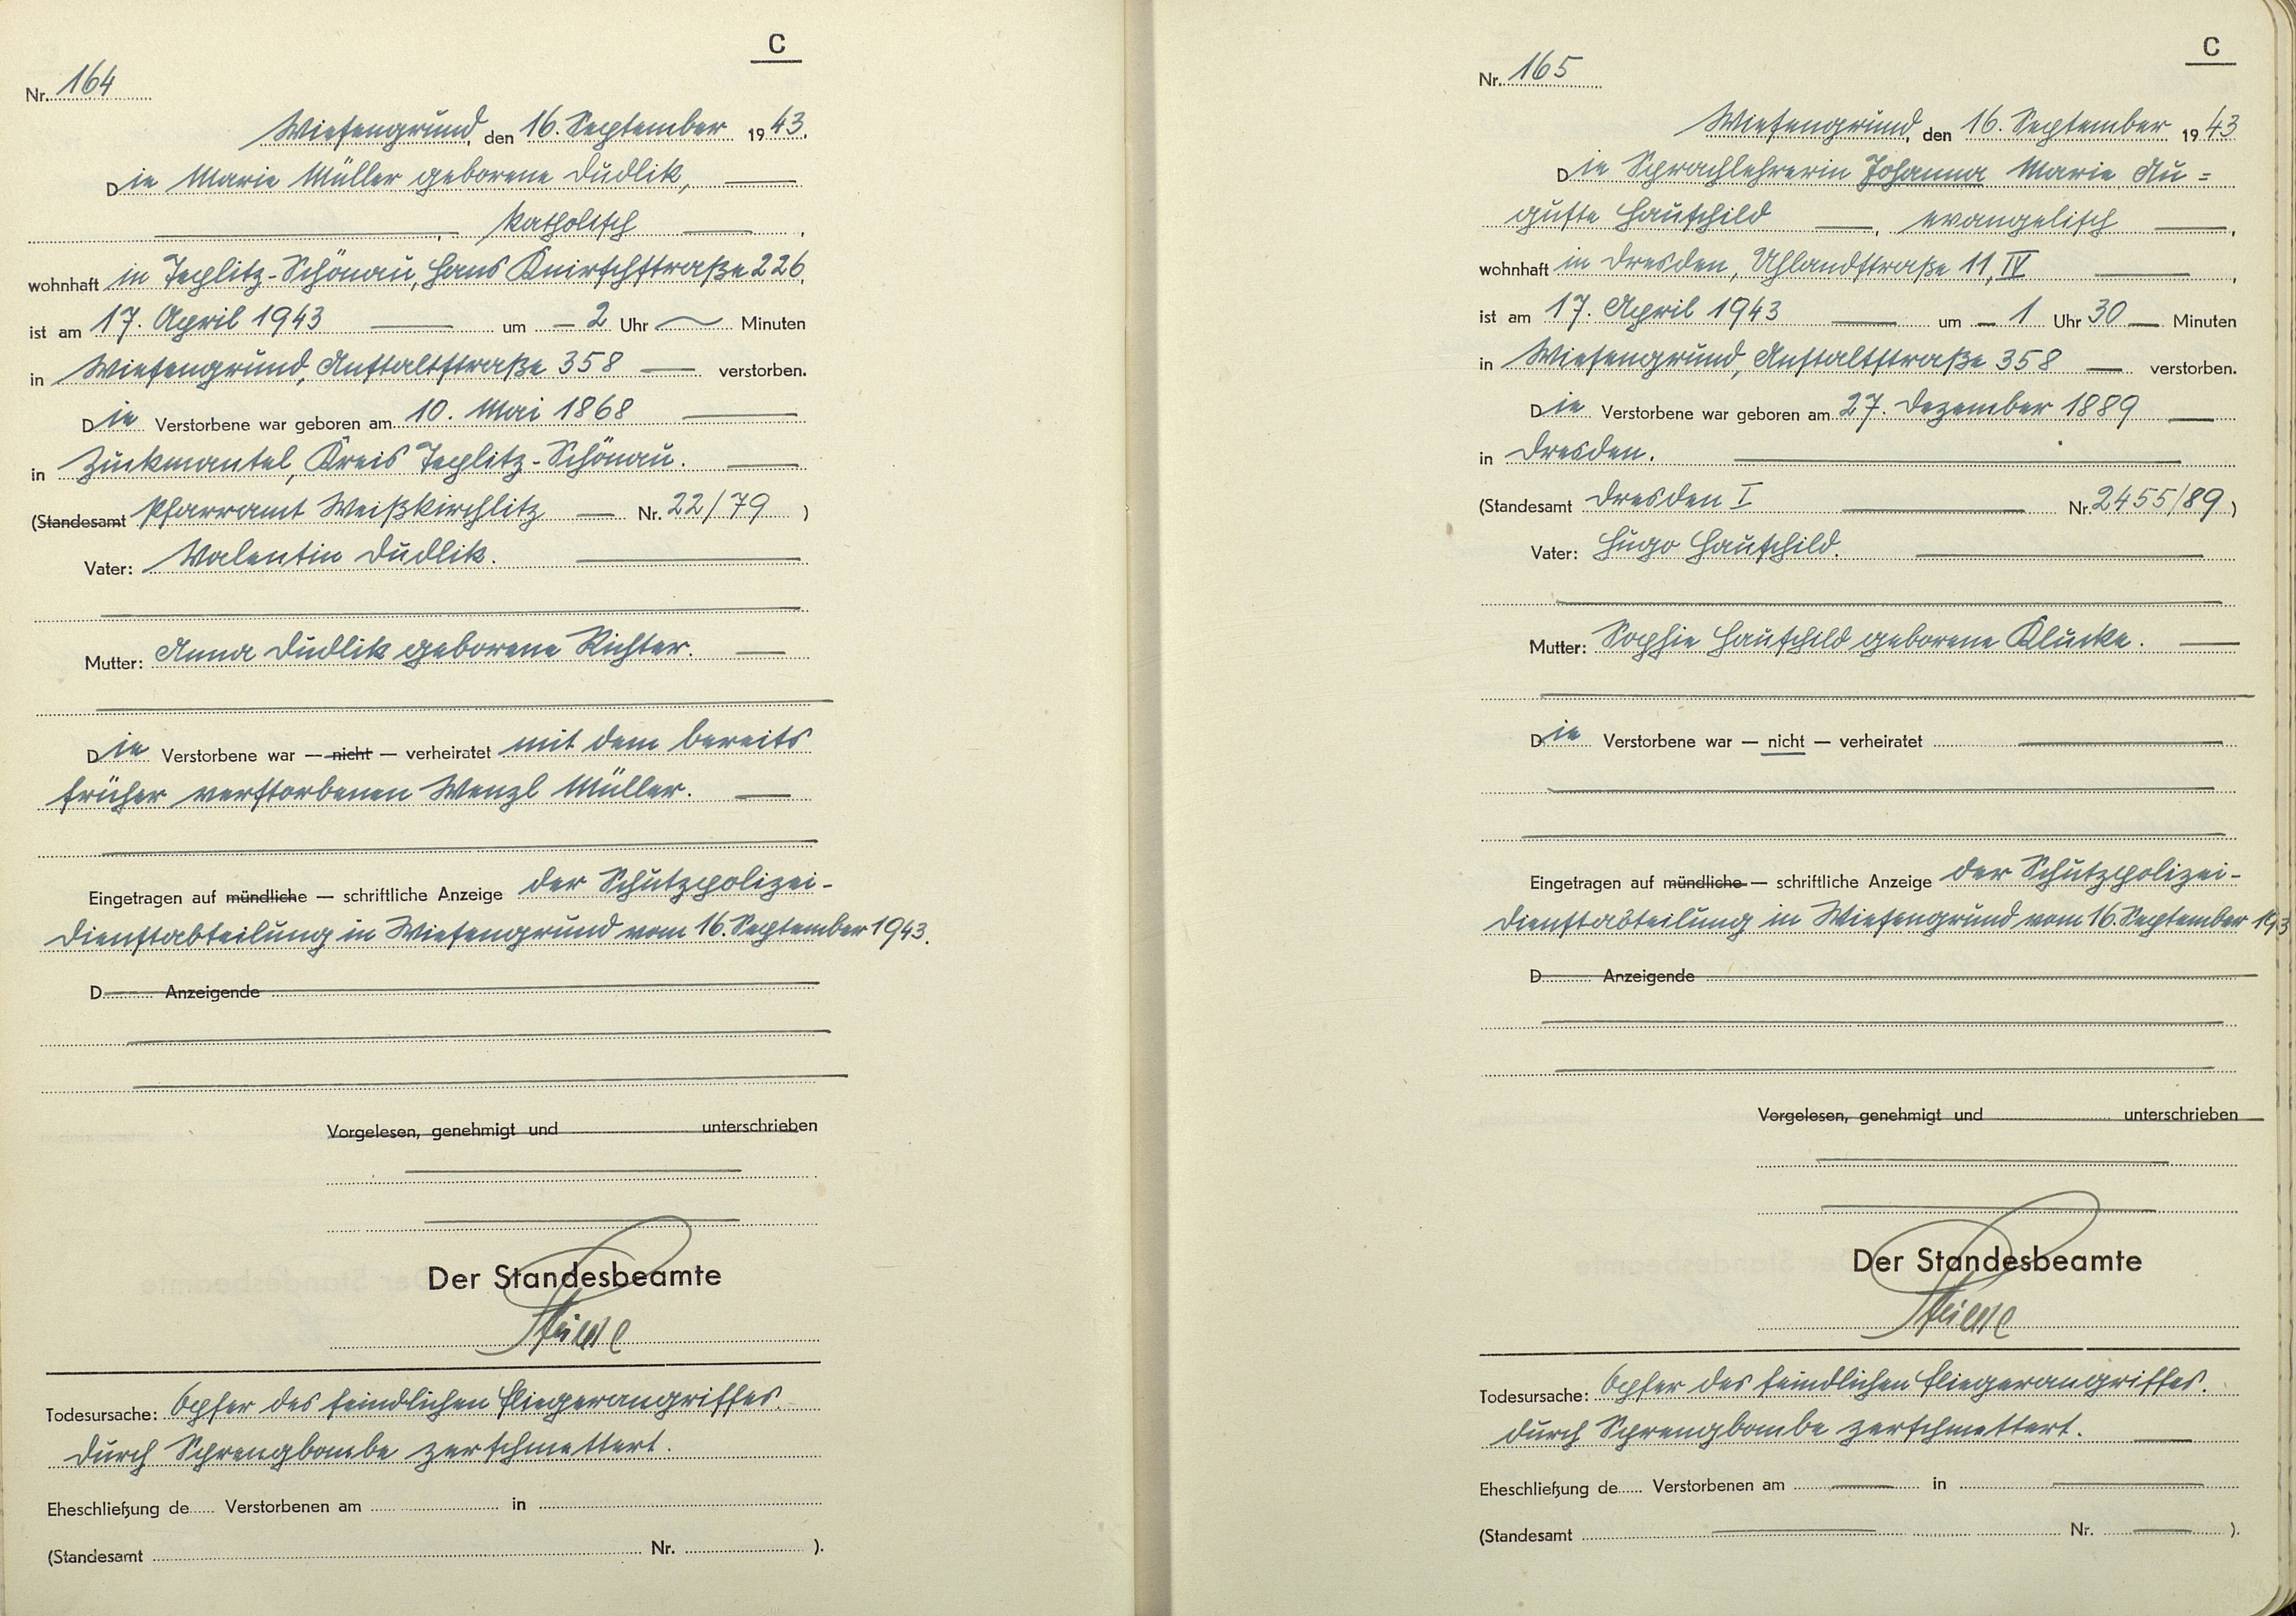 C
Nr. 164
Wiesengrund, den 16. September 1943.
Die Marie Müller geborene Dudlik,
, katholisch ,
wohnhaft in Teplitz-Schönau, Hans Knirschstraße 226,
ist am 17. April 1943 um — 2 Uhr Minuten
in Wiesengrund, Anstaltstraße 358 — verstorben.
Die Verstorbene war geboren am 10. Mai 1868
in Zuckmantel, Kreis Teplitz-Schönau.
(Standesamt Pfarramt Weißkirchlitz — Nr. 22/79 )
Vater: Valentin Dudlik.
Mutter: Anna Dudlik geborene Richter.
Die Verstorbene war — nicht — verheiratet mit dem bereits
früher verstorbenen Wenzl Müller.
Eingetragen auf mündliche — schriftliche Anzeige der Schutzpolizei-
dienstabteilung in Wiesengrund vom 16. September 1943.
D Anzeigende
Vorgelesen, genehmigt und unterschrieben
Der Standesbeamte
Todesursache: Opfer des feindlichen Fliegerangriffes.
durch Sprengbombe zerschmettert.
Eheschließung de Verstorbenen am in
(Standesamt Nr. ).
C
Nr. 165
Wiesengrund, den 16. September 1943
Die Sprachlehrerin Johanna Marie Au=
guste Hauschild —, evangelisch —,
wohnhaft in Dresden, Uhlandstraße 11, IV ,
ist am 17. April 1943 um — 1 Uhr 30 — Minuten
in Wiesengrund, Anstaltstraße 358 — verstorben.
Die Verstorbene war geboren am 27. Dezember 1889
in Dresden.
(Standesamt Dresden I Nr. 2455/89 )
Vater: Hugo Hauschild.
Mutter: Sophie Hauschild geborene Klucke.
Die Verstorbene war — nicht — verheiratet
Eingetragen auf mündliche — schriftliche Anzeige der Schutzpolizei-
dienstabteilung in Wiesengrund vom 16. September 193
D Anzeigende
Vorgelesen, genehmigt und unterschrieben
Der Standesbeamte
Todesursache: Opfer des feindlichen Fliegerangriffes.
durch Sprengbombe zerschmettert.
Eheschließung de Verstorbenen am in
(Standesamt Nr. ).